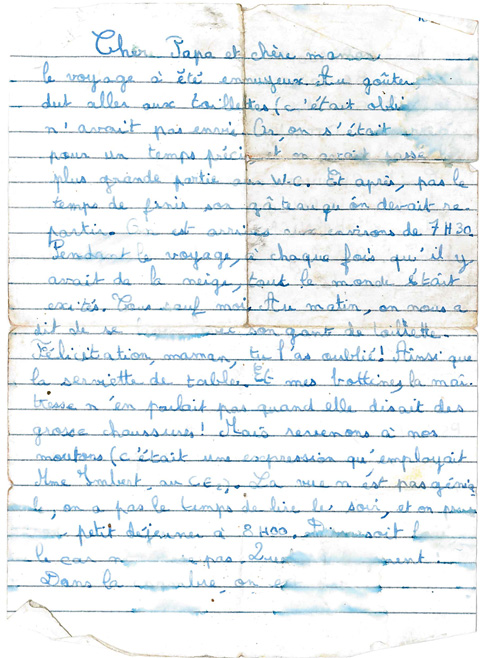 Cher Papa et chère maman
le voyage à été ennuyeux. Au goûter
dut aller aux toillettes (c'était obli
n'avait pas envie. Or, on s'était
pour un temps précis, et on avait passé
plus grande partie au W.C. Et après, pas le
temps de finir son gâteau qu'on devait re
partir. On est arrivés aux environs de 7H30
Pendant le voyage, à chaque fois qu'il y
avait da la neige, tout le monde était
excités. Tous sauf moi. Au matin, on nous a
dit de se son gant de toillette.
Félicitation, maman, tu l'as oublié! Ainsi que
la serviette de table. Et mes bottines, la maî
tresse n'en parlait pas quand elle disait des
grosse chaussures! Mais revenons à nos
moutons (c'était une expression qu'employait
Mme Imbert, au CE2). La vue n'est pas génia
le, on a pas le temps de lire le soir, et on
petit déjeuner à 8H00.
le car pas.
Dans la on